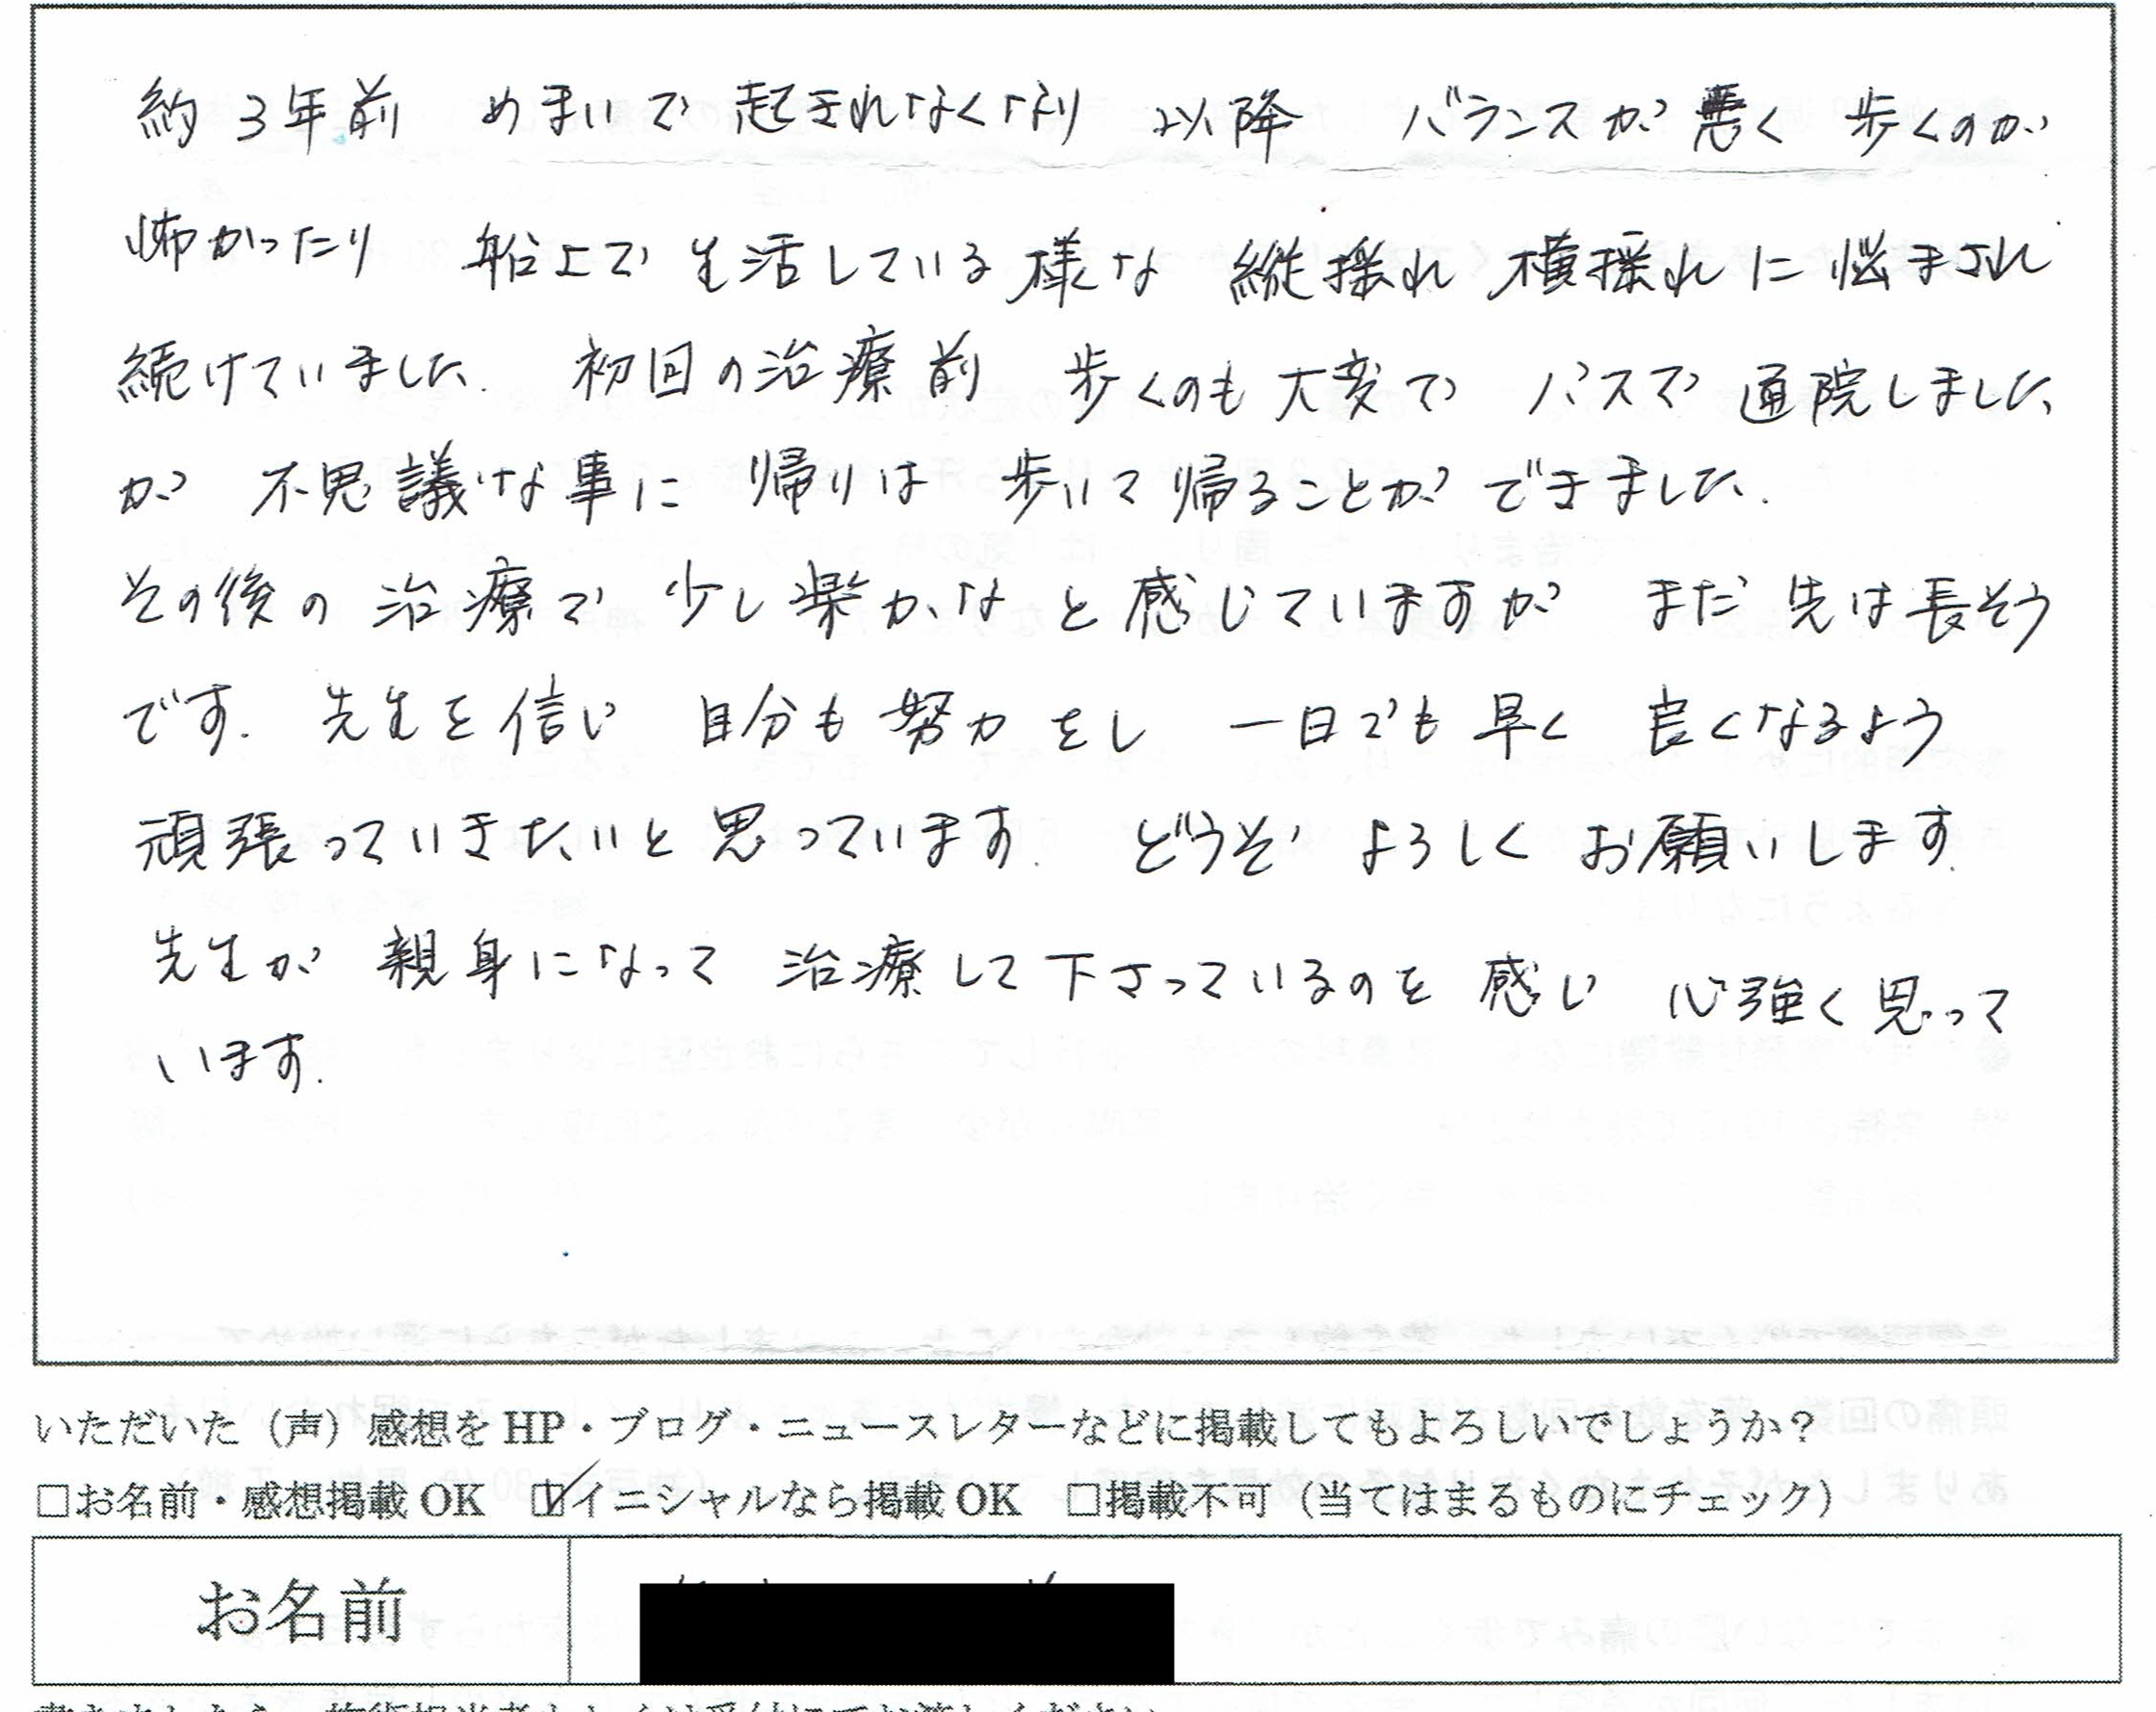 約3年前 めまいで起きれなくなり 以降 バランスが悪く 歩くのが
怖かったり 船上で生活している様な 縦揺れ 横揺れに悩まされ
続けていました. 初回の治療前 歩くのも大変で バスで通院しました
が 不思議な事に 帰りは 歩いて帰ることができました.
その後の治療で 少し楽かなと感じていますが まだ先は長そう
です. 先生を信じ 自分も努力をし 一日でも早く 良くなるよう
頑張っていきたいと思っています. どうぞ よろしくお願いします.
先生が 親身になって 治療して下さっているのを 感じ 心強く思って
います.
いただいた（声）感想をHP・ブログ・ニュースレターなどに掲載してもよろしいでしょうか？
□お名前・感想掲載OK ☑イニシャルなら掲載OK □掲載不可（当てはまるものにチェック）
お名前